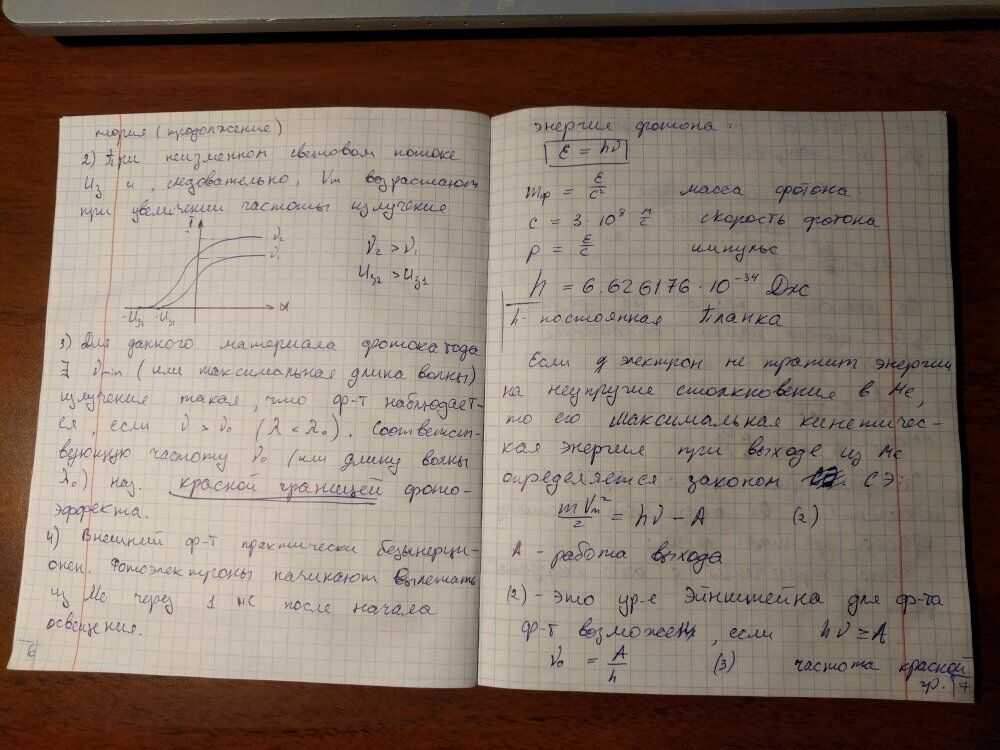 теория (продолжение)
2) При неизменном световом потоке
Uз и, следовательно, Vm возрастают
при увеличении частоты излучения
I
ν₂
ν₁
ν₂ > ν₁
Uз2 > Uз1
-Uз2 -Uз1 U
3) Для данного материала фотокатода
∃ νmin (или максимальная длина волны)
излучение такая, что ф-т наблюдает-
ся, если ν > ν₀ (λ < λ₀). Соответст-
вующую частоту ν₀ (или длину волны
λ₀) наз. красной границей фото-
эффекта.
4) Внешний ф-т практически безынерци-
онен. Фотоэлектроны начинают вылетать
из Ме через 1 нс после начала
освещения.
6
энергия фотона:
ε = hν
mф = ε/c² масса фотона
c = 3 · 10⁸ м/с скорость фотона
p = ε/c импульс
h = 6.626176 · 10⁻³⁴ Дж
h - постоянная Планка
Если электрон не тратит энергии
на неупругие столкновения в Ме,
то его максимальная кинетичес-
кая энергия при выходе из Ме
определяется законом СЭ:
mVm²/2 = hν - A (2)
A - работа выхода
(2) - это ур-е Эйнштейна для ф-та
ф-т возможен, если hν ≥ A
ν₀ = A/h (3) частота красной
гр. 7